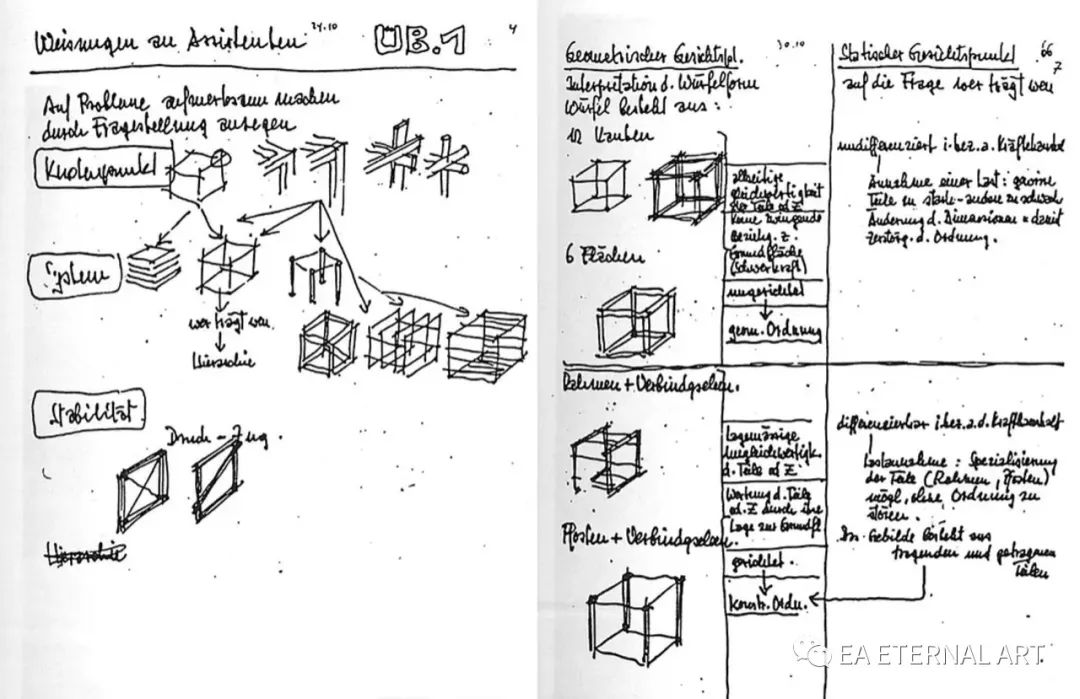 Weisungen an Assistenten
24.10
ÜB.1
4
Auf Probleme aufmerksam machen
durch Fragestellung anregen
Knotenpunkt
System
wer trägt wen
Hierarchie
Stabilität
Druck - Zug.
Hierarchie
Geometrischer Gesichtspkt.
30.10
Interpretation d. Würfelform
Würfel besteht aus:
12 Kanten
allseitige
Gleichwertigkeit
der Teile
keine zwingende
Bezieh. z.
Grundfläche
(Schwerkraft)
6 Flächen
ungerichtet
geom. Ordnung
Rahmen + Verbindgselem.
lagemässige
Ungleichwertigk.
d. Teile
Wertung d. Teile
durch ihre
Lage zur Grundfl.
Pfosten + Verbindgselem.
gerichtet.
konstr. Ordn.
Statischer Gesichtspunkt
66
7
auf die Frage wer trägt wen
undifferenziert i. bez. a. Kräftehaushalt
Annahme einer Last: gewisse
Teile zu stark - andere zu schwach
Änderung d. Dimensionen = damit
Zerstörg. d. Ordnung.
differenzierbar i. bez. a. d. Kräftehaushalt
Lastannahme: Spezialisierung
der Teile (Rahmen, Pfosten)
mögl., ohne Ordnung zu
stören.
Gebilde besteht aus
tragenden und getragenen
Teilen
EA ETERNAL ART